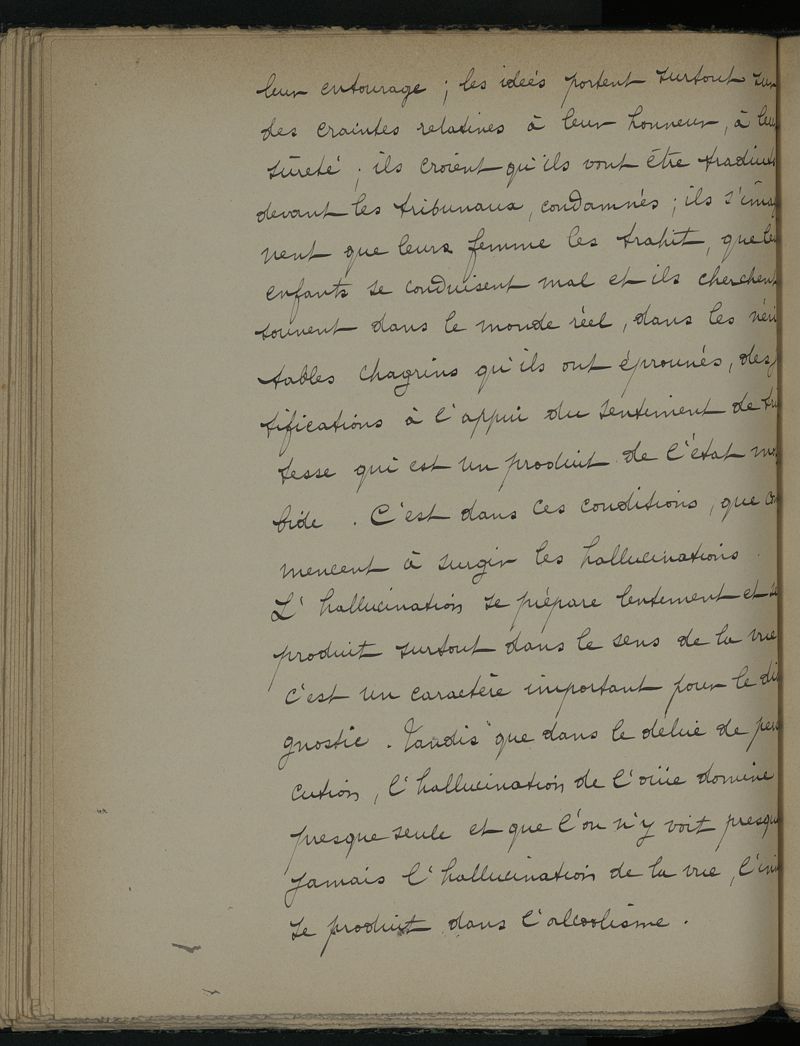 leur entourage ; les ideés portent surtout sur
des craintes relatives à leur honneur, à leu
sûreté ; ils croient qu'ils vont être traduits
devant les tribunaux, condamnés ; ils s'imag
nent que leurs femme les trahit, que leu
enfants se conduisent mal et ils cherchent
souvent dans le monde réel, dans les véri
tables chagrins qu'ils ont éprouvés, des j
tifications à l'appui du sentiment de tri
tesse qui est un produit de l'état mor
bide . C'est dans ces conditions, que com
mencent à surgir les hallucinations .
L'hallucination se prépare lentement et se
produit surtout dans le sens de la vue
c'est un caractère important pour le di
gnostic . Tandis que dans le délire de pers
cution, l'hallucination de l'ouïe domine
presque seule et que l'on n'y voit presque
jamais l'hallucination de la vue, l'in
se produit dans l'alcoolisme .